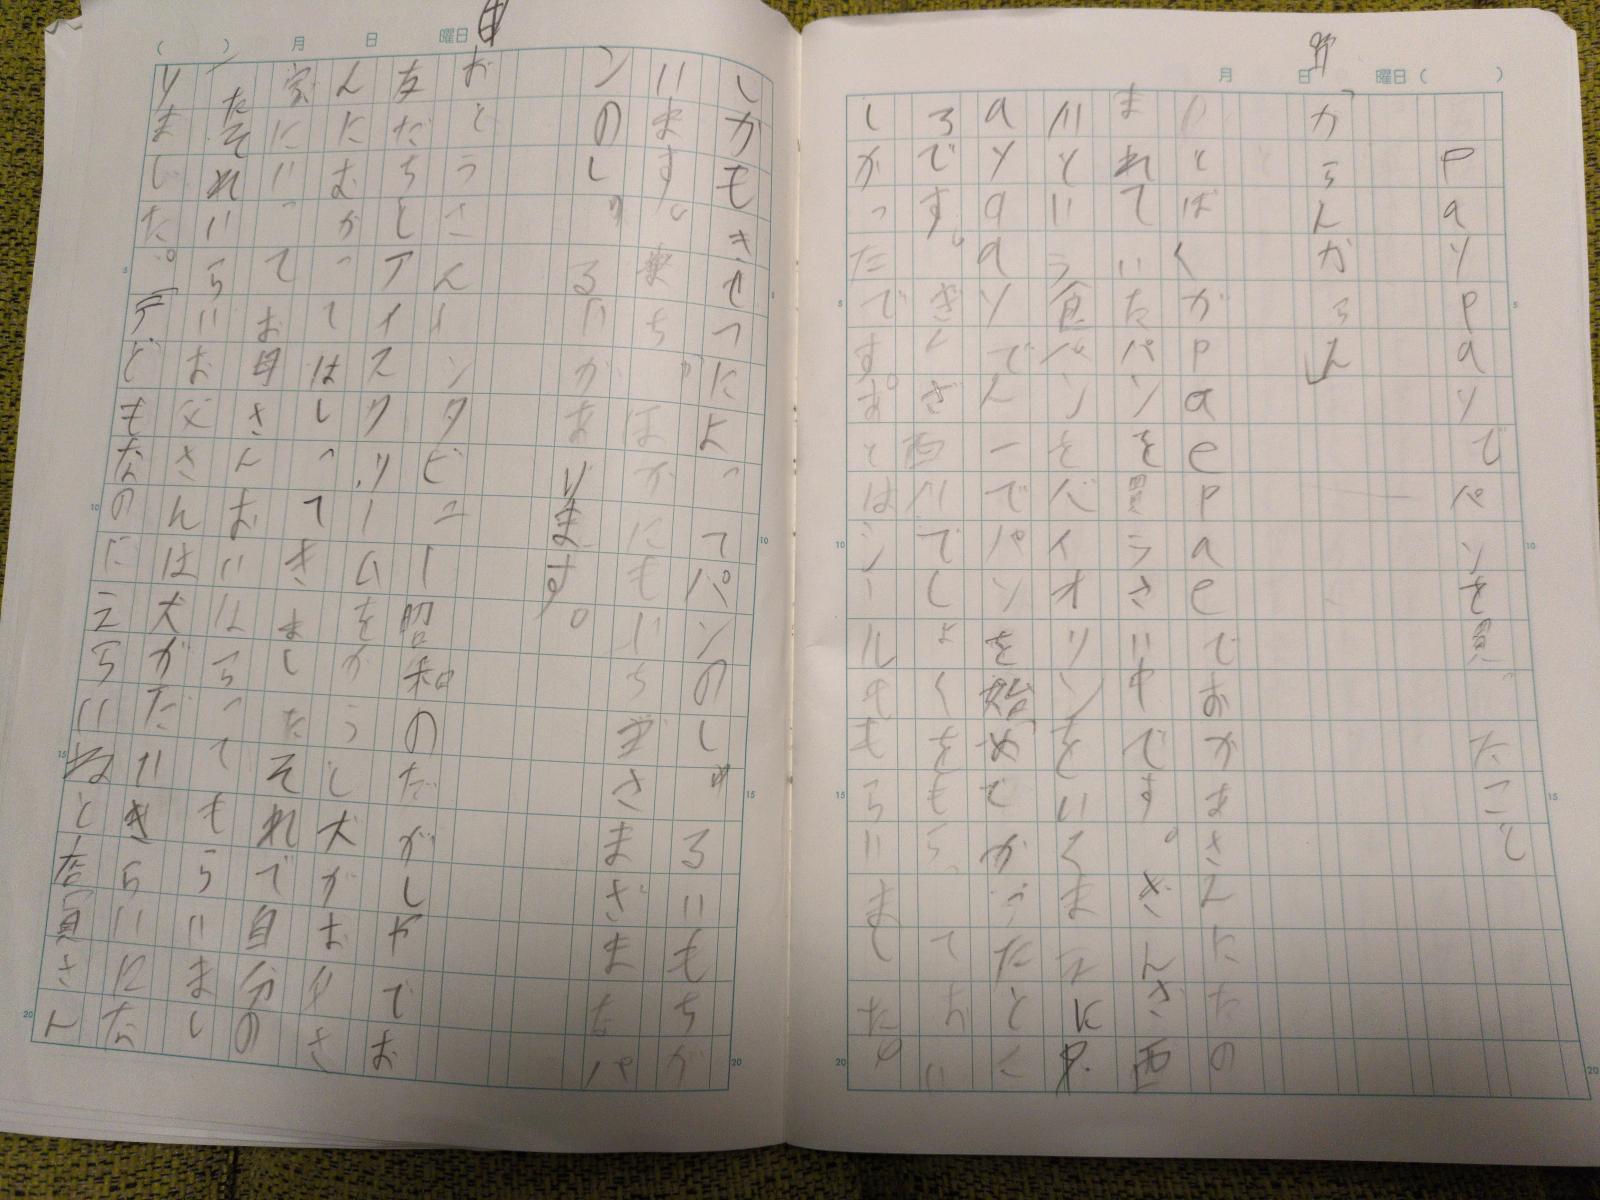 月 日 曜日 ( )
PayPayでパンを買ったこと
「カランカラン」
いとばくがPaePaeでおかあさんにたの
まれていたパンを買うさい中です。ぎんざ西
川という食パンをバイオリンをいくまえに
でパンを始めてかったとく
ろです。ぎんざ西川でしょくをもらっておい
しかったです。あとはシールももらいました。
( ) 月 日 曜日
しかもきせつによってパンのしゅるいもちが
います。ほかにもいちごさまざまなパ
ンのしゅるいがあります。
おとうさんインタビュー昭和のだがしやでお
友だちとアイスクリームをかうし犬がお
んにむかってはしってきましたそれで自分の
家にいってお母さんおいはらってもらいまし
たそれいらいお父さんは犬がだいきらいにな
りました。「子どもなのにえらいねと店員さん